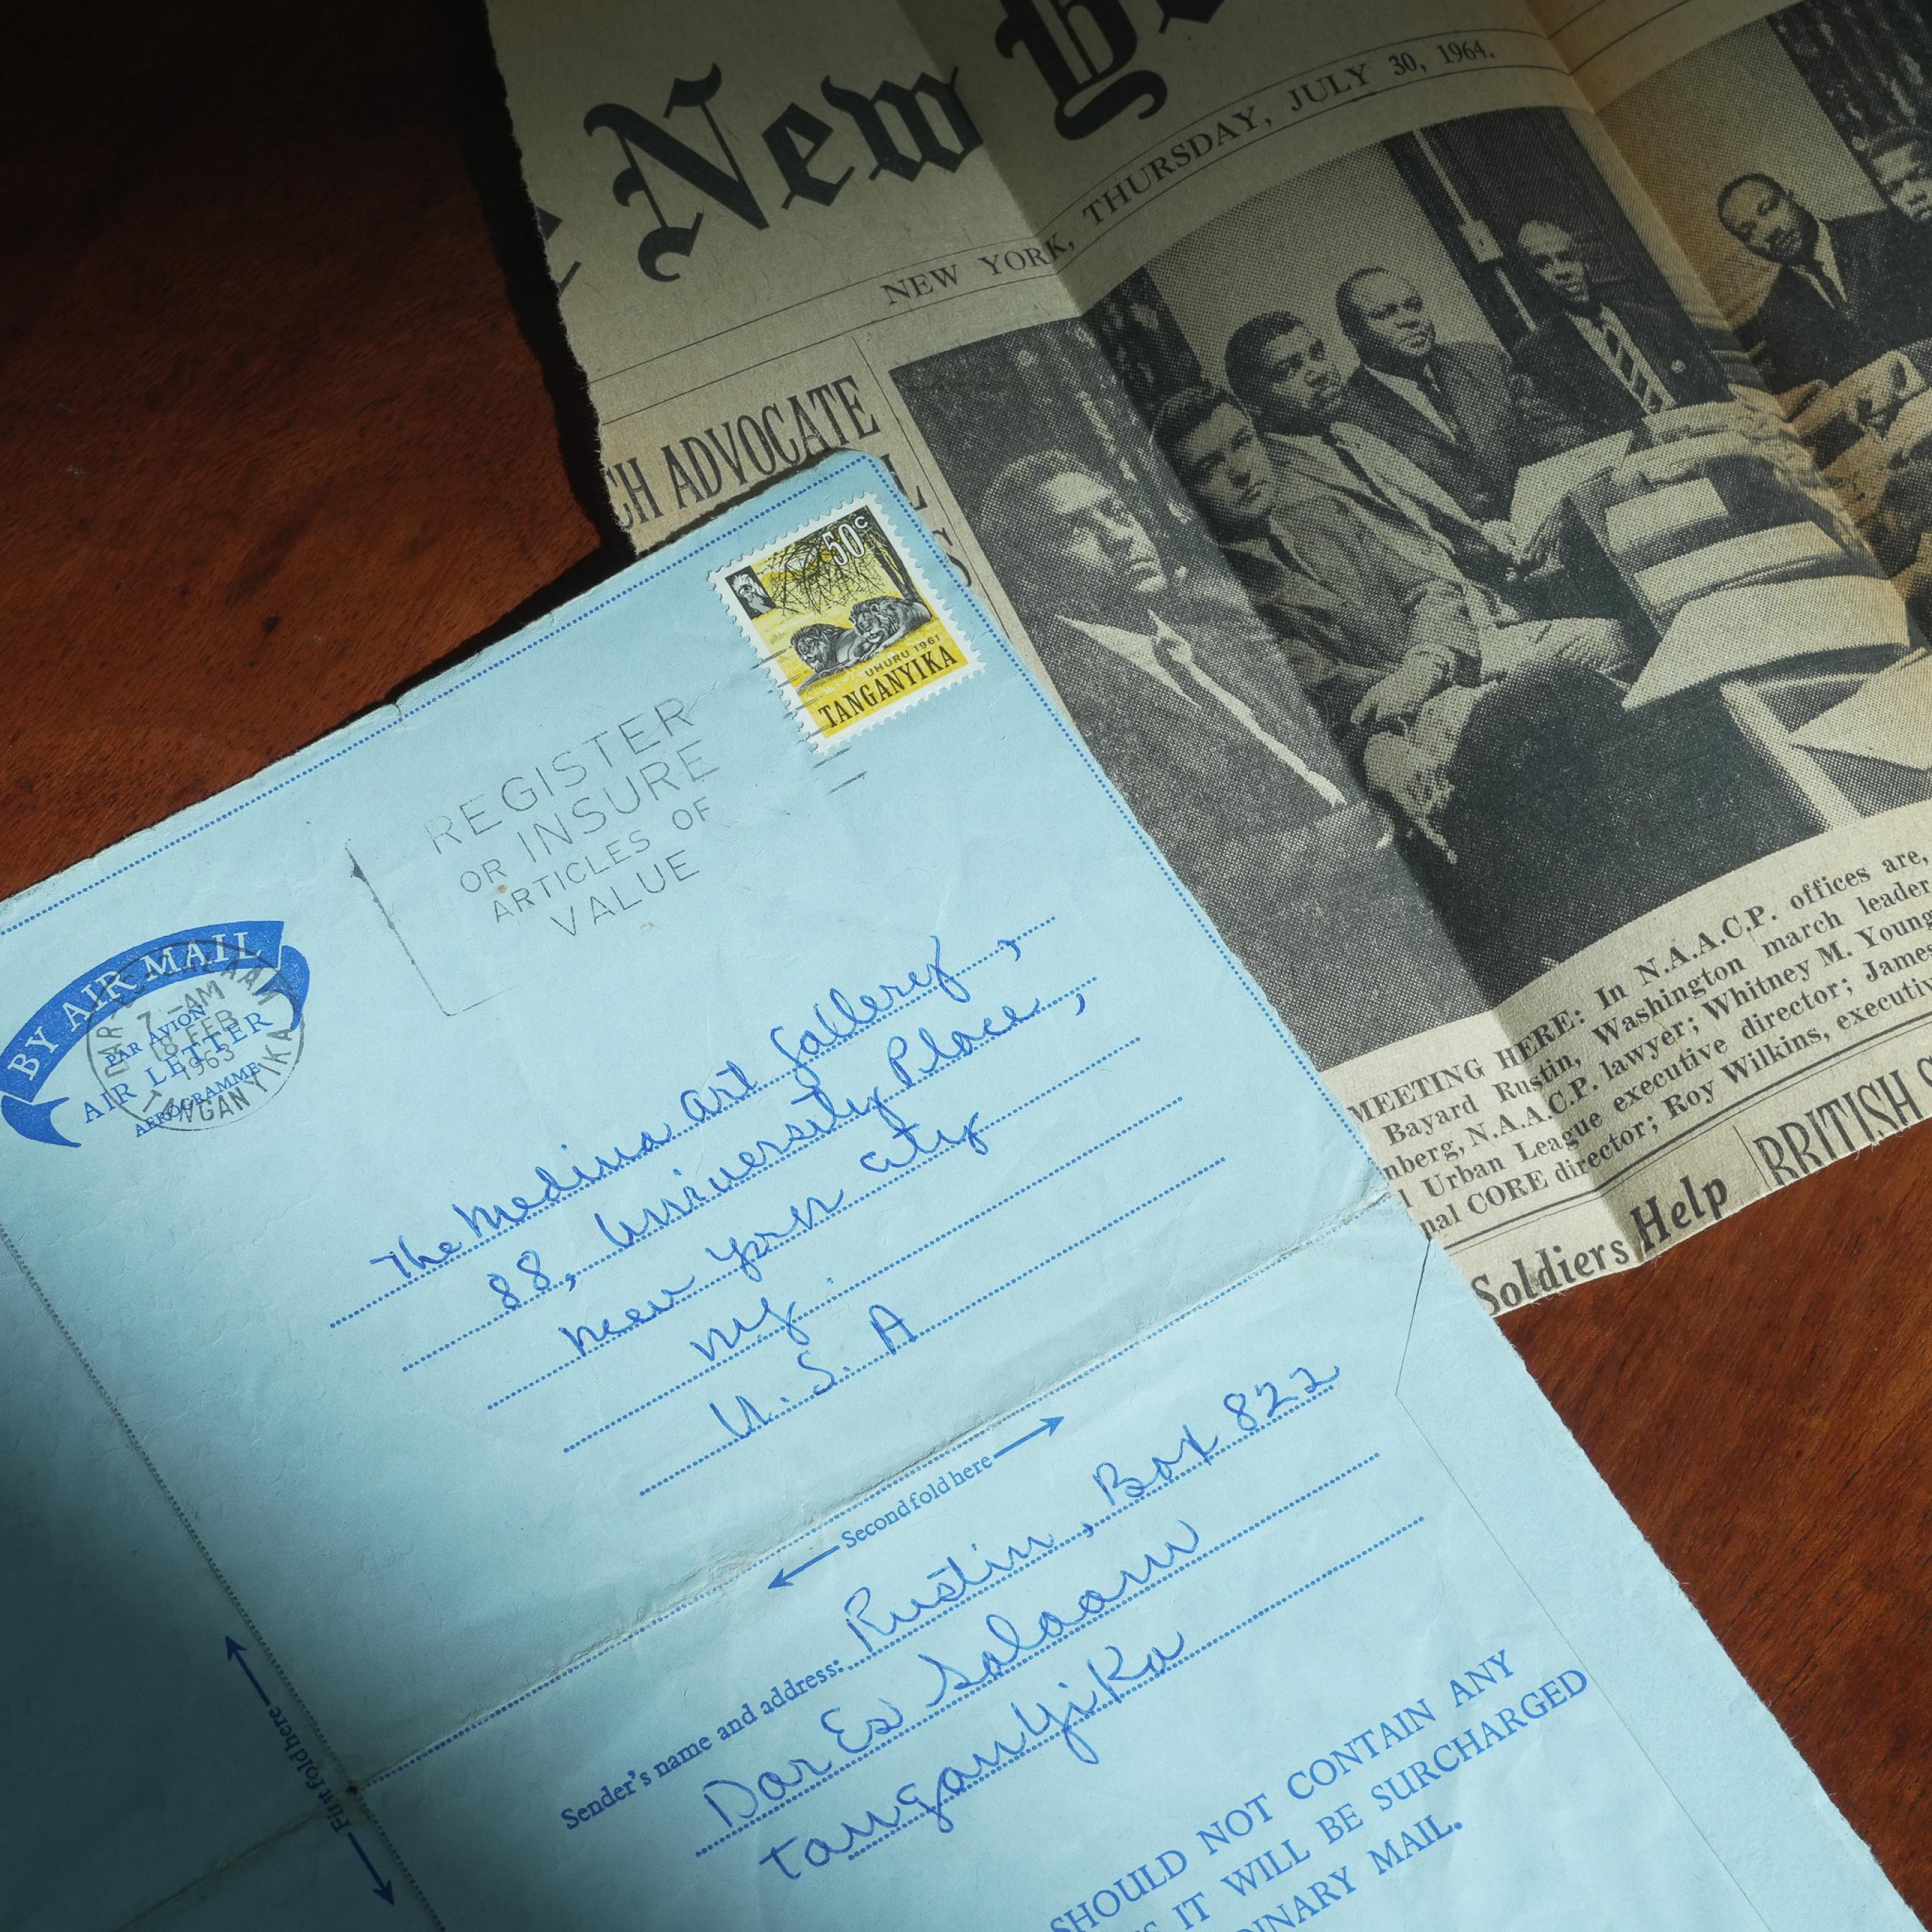 New
NEW YORK, THURSDAY, JULY 30, 1964.
CH ADVOCATE
MEETING HERE: In N.A.A.C.P. offices are,
Bayard Rustin, Washington march leader
nberg, N.A.A.C.P. lawyer; Whitney M. Young
l Urban League executive director; James
nal CORE director; Roy Wilkins, executiv
Soldiers Help
BRITISH
50c
UHURU 1961
TANGANYIKA
REGISTER
OR INSURE
ARTICLES OF
VALUE
BY AIR MAIL
PAR AVION
AIR LETTER
AEROGRAMME
7-AM
FEB
1963
TANGANYIKA
The Medina Art Gallery,
88, University Place,
New York City
NY.
U.S.A
Second fold here
Sender's name and address: Rustin, Box 822
Dar Es Salaam
TanganyiKa
First fold here
SHOULD NOT CONTAIN ANY
IT WILL BE SURCHARGED
DINARY MAIL.